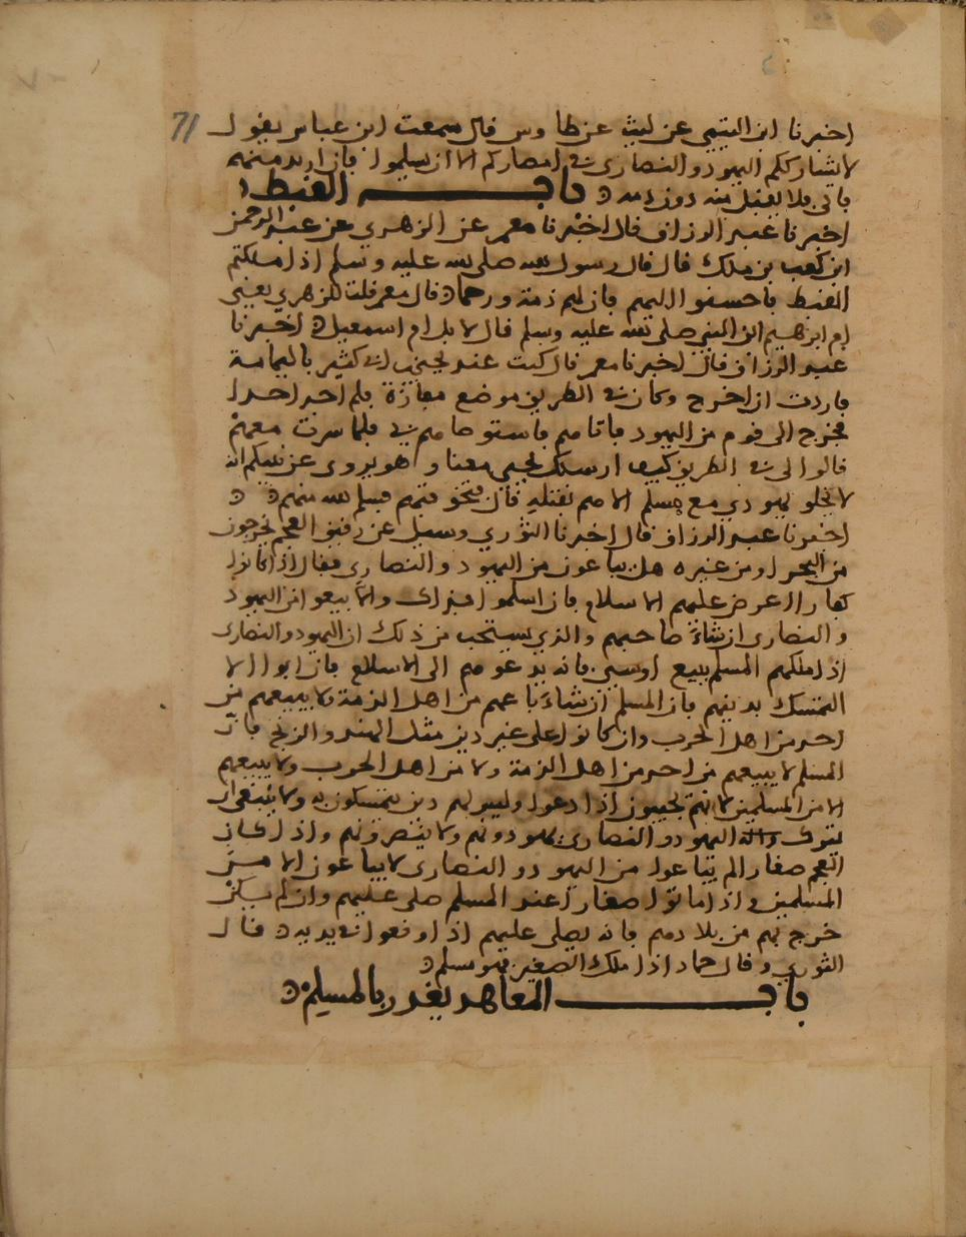 71
اخبرنا ابن التيمي عن ليث عن طاوس قال سمعت ابن عباس يقول
لا يشارككم اليهود والنصارى في امصاركم الا ان يسلموا فان ارتد منهم
فابى فلا يقبل منه دون دمه باب القبط
اخبرنا عبد الرزاق قال اخبرنا معمر عن الزهري عن عبد الرحمن
ابن كعب بن ملك قال قال رسول الله صلى الله عليه وسلم اذا ملكتم
القبط فاحسنوا اليهم فان لهم ذمة ورحما قال معمر قلت للزهري يعني
ام ابرهيم ابن النبي صلى الله عليه وسلم قال لا بل ام اسمعيل اخبرنا
عبد الرزاق قال اخبرنا معمر قال كنت عند يحيى بن ابي كثير باليمامة
فاردت ان اخرج وكان في الطريق موضع مفازة فلم اجد احدا
فخرج الى قوم من اليهود فاتاهم فاستوصاهم في فلما سرت معهم
قالوا لي في الطريق كيف ارسلك يحيى معنا وهو يروي عن نبيكم انه
لا يخلو يهودي مع مسلم الا هم بقتله قال فتخوفتهم فسلم الله منهم
اخبرنا عبد الرزاق قال اخبرنا الثوري وسئل عن رقيق العجم يخرجون
من البحر او من غيره هل يباعون من اليهود والنصارى فقال اذا كانوا
كبارا عرض عليهم الاسلام فان اسلموا فذاك والا بيعوا من اليهود
والنصارى ان شاء صاحبهم والذي يستحب من ذلك ان اليهود والنصارى
اذا ملكهم المسلم ببيع او سبي فانه يدعوهم الى الاسلام فان ابوا الا
التمسك بدينهم فان المسلم ان شاء باعهم من اهل الذمة ولا يبيعهم من
احد من اهل الحرب وان كانوا على غير دين مثل الهند والزنج فان
المسلم لا يبيعهم من احد من اهل الذمة ولا من اهل الحرب ولا يبيعهم
الا من المسلمين لانهم يجيبون اذا دعوا وليس لهم دين يتمسكون به ولا ينبغي ان
يترك اليهود والنصارى يهودونهم ولا ينصرونهم واذا كان
العجم صغارا لم يباعوا من اليهود والنصارى لا يباعون الا من
المسلمين واذا ماتوا صغارا عند المسلم صلى عليهم وان لم يكن
خرج بهم من بلادهم فانه يصلى عليهم اذا وقعوا في يديه قال
الثوري وقال حماد اذا ملك الصغير فهو مسلم
باب المعاهد يغدر بالمسلم